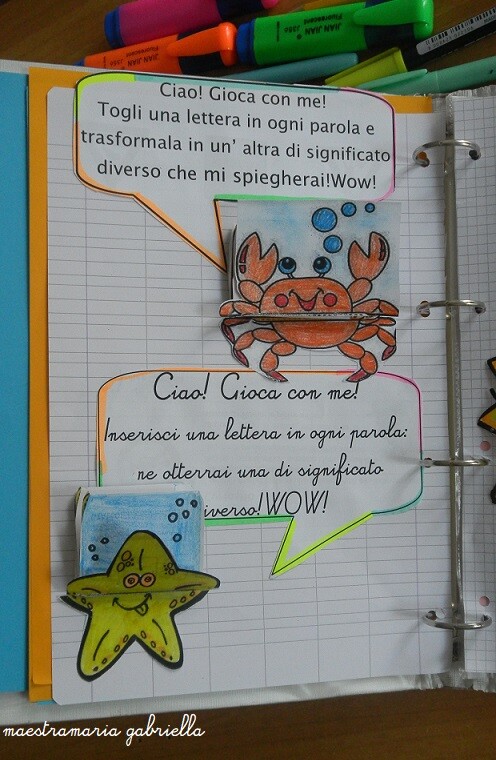 JIAN JIAN Fluorescent
JIAN JIAN Fluorescent
Ciao! Gioca con me!
Togli una lettera in ogni parola e
trasformala in un' altra di significato
diverso che mi spiegherai!Wow!
Ciao! Gioca con me!
Inserisci una lettera in ogni parola:
ne otterrai una di significato
iverso!WOW!
maestramaria gabriella